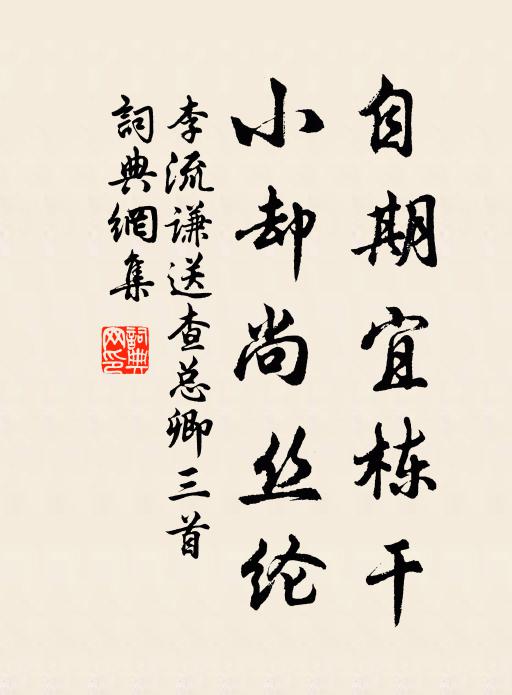 自期宜栋干
小却尚丝纶
李流谦送查总卿三首
詞典網集
詞典网印